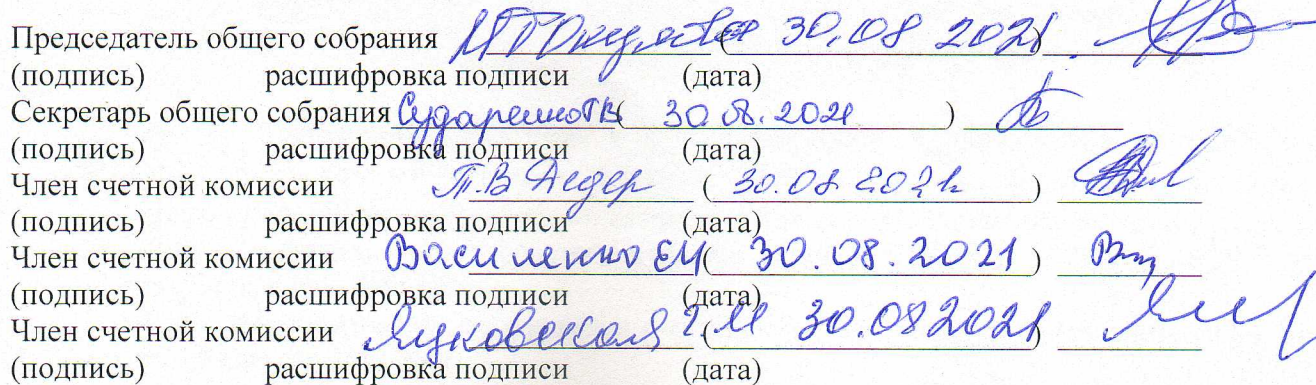 Председатель общего собрания ( 30.08 2021 )
(подпись) расшифровка подписи (дата)
Секретарь общего собрания Сударенко ТВ ( 30.08.2021 )
(подпись) расшифровка подписи (дата)
Член счетной комиссии Т.В Дедер ( 30.08 2021г )
(подпись) расшифровка подписи (дата)
Член счетной комиссии Василенко ЕМ ( 30.08.2021 )
(подпись) расшифровка подписи (дата)
Член счетной комиссии ( 30.08 2021 )
(подпись) расшифровка подписи (дата)